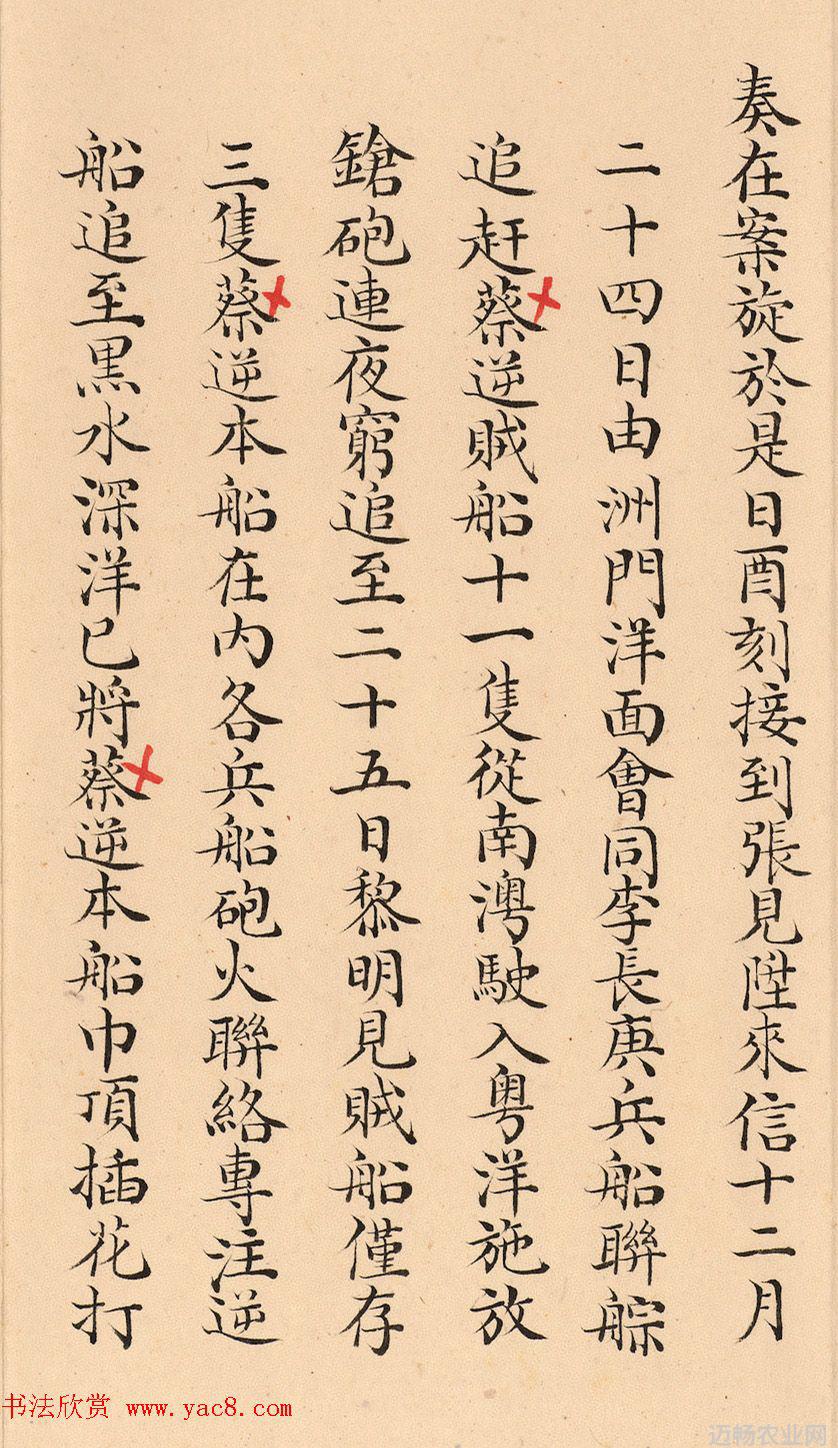 奏在案旋於是日酉刻接到張見陞來信十二月
二十四日由洲門洋面會同李長庚兵船聯䑸
追赶蔡逆賊船十一隻從南澳駛入粤洋施放
鎗砲連夜窮追至二十五日黎明見賊船僅存
三隻蔡逆本船在内各兵船砲火聯絡專注逆
船追至黒水深洋已將蔡逆本船巾頂插花打
书法欣赏 www.yac8.com
迈畅农业网